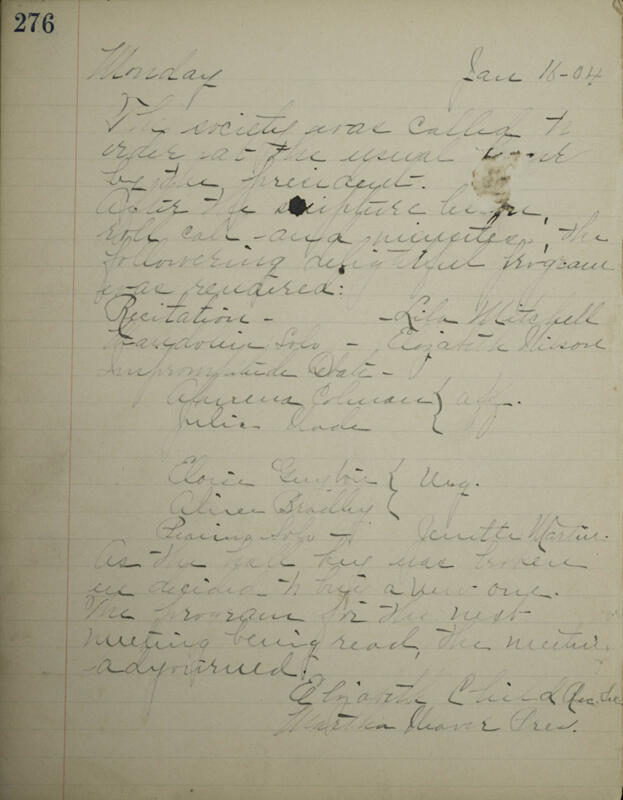 276
Monday Jan 16-04
The society was called to
order at the usual hour
by the president.
After the scripture lesson,
roll call and minutes, the
following delightful program
was rendered:
Recitation - - Lila Mitchell
Mandolin Solo - Elizabeth
Impromptu Debate -
Colman } aff.
Julia
Eloise } Neg.
Bradley
Piano Solo - Martin.
As the hall key was broken
we decided to buy a new one.
The program for the next
meeting being read, the meeting
adjourned.
Elizabeth Child Rec. Sec.
Martha Pres.